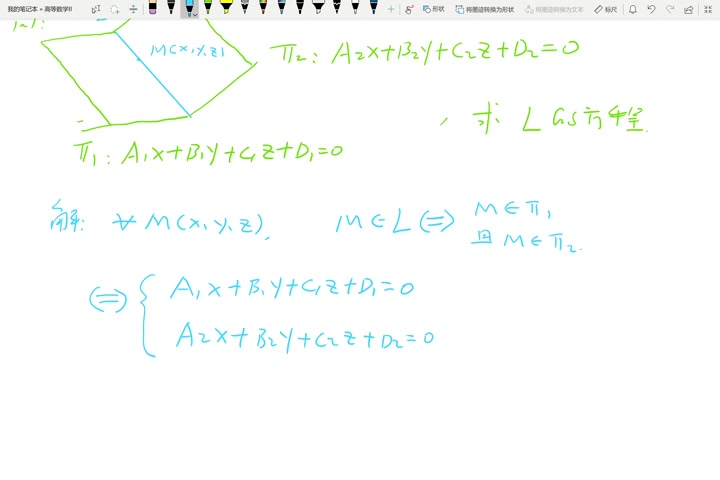 我的笔记本 » 高等数学II
形状
将图逆转换为形状
将图逆转换为文本
标尺
M(x,y,z)
π₂: A₂x+B₂y+C₂z+D₂=0
, 求 L 的方程.
π₁: A₁x+B₁y+C₁z+D₁=0
解: ∀ M(x,y,z), M∈L ⟺ M∈π₁
且 M∈π₂.
⟺ { A₁x+B₁y+C₁z+D₁=0
A₂x+B₂y+C₂z+D₂=0